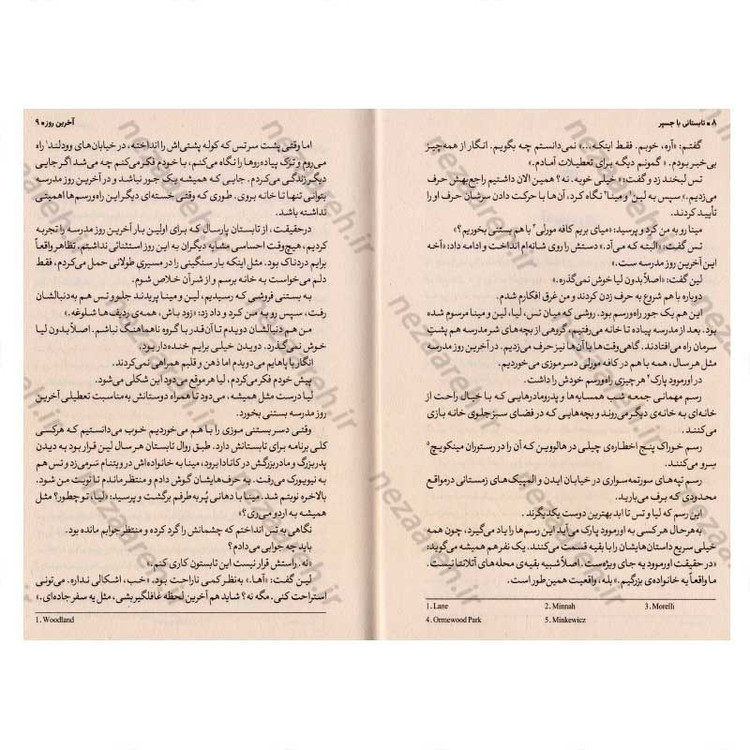 ۸ • تابستانی با جسپر
گفتم: «آره، خوبم. فقط اینکه...» نمی‌دانستم چه بگویم. انگار از همه‌چیز
بی‌خبر بودم. «گمونم دیگه برای تعطیلات آمادم.»
تس لبخند زد و گفت: «خیلی خوبه. نه؟ همین الان داشتیم راجع‌بهش حرف
می‌زدیم.» سپس به لین۱ و مینا۲ نگاه کرد، آن‌ها با حرکت دادن سرشان حرف او را
تأیید کردند.
مینا رو به من کرد و پرسید: «میای بریم کافه مورلی۳ با هم بستنی بخوریم؟»
تس گفت: «البته که می‌آد.» دستش را روی شانه‌ام انداخت و ادامه داد: «آخه
این آخرین روز مدرسه ست.»
لین گفت: «اصلاً بدون لیا خوش نمی‌گذره.»
دوباره با هم شروع به حرف زدن کردند و من غرق افکارم شدم.
این هم یک جور راه‌ورسم بود. روشی که میان تس، لیا، لین و مینا مرسوم شده
بود. بعد از مدرسه پیاده تا خانه می‌رفتیم. گروهی از بچه‌های شر مدرسه هم پشت
سرمان راه می‌افتادند. گاهی‌وقت‌ها با آن‌ها نیز حرف می‌زدیم. در آخرین روز مدرسه
مثل هر سال، همه با هم در کافه مورلی دسر موزی می‌خوردیم.
در اورموود پارک۴ هر چیزی راه‌ورسم خودش را داشت.
رسم مهمانی جمعه شب همسایه‌ها و پدرومادرهایی که با خیال راحت از
خانه‌ای به خانه‌ی دیگر می‌روند و بچه‌هایی که در فضای سبز جلوی خانه بازی
می‌کنند.
رسم خوراک پنج اخطاره‌ی چیلی در هالووین که آن را در رستوران مینکویچ۵
سرو می‌کنند.
رسم تپه‌های سورتمه‌سواری در خیابان ایدن و المپیک‌های زمستانی در مواقع
محدودی که برف می‌بارید.
این رسم که لیا و تس تا ابد بهترین دوست یکدیگرند.
به‌هرحال هر کسی به اورموود پارک می‌آید این رسم‌ها را یاد می‌گیرد، چون همه
خیلی سریع داستان‌هایشان را با بقیه قسمت می‌کنند. یک نفر هم همیشه می‌گوید:
«در حقیقت اورموود یه جای ویژه‌ست. اصلاً شبیه بقیه‌ی محله‌های آتلانتا نیست.
ما واقعاً یه خانواده‌ی بزرگیم.» بله، واقعیت همین طور است.
1. Lane 2. Minnah 3. Morelli
4. Ormewood Park 5. Minkewicz
آخرین روز • ۹
اما وقتی پشت سر تس که کوله پشتی‌اش را انداخته، در خیابان‌های وودلند۱ راه
می‌روم و ترک پیاده‌روها را نگاه می‌کنم، با خودم فکر می‌کنم چه می‌شد اگر جایی
دیگر زندگی می‌کردم. جایی که همیشه یک جور نباشد و در آخرین روز مدرسه
بتوانی تنها تا خانه بروی. طوری که وقتی خسته‌ای دیگر این راه‌ورسم‌ها اهمیتی
نداشته باشد.
درحقیقت، از تابستان پارسال که برای اولین بار آخرین روز مدرسه را تجربه
کردیم، هیچ‌وقت احساسی مشابه دیگران به این روز استثنائی نداشتم. تظاهر واقعاً
برایم دردناک بود. مثل اینکه بار سنگینی را در مسیری طولانی حمل می‌کردم، فقط
دلم می‌خواست به خانه برسم و از شر آن خلاص شوم.
به بستنی فروشی که رسیدیم، لین و مینا پریدند جلو و تس هم به‌دنبالشان
رفت، سپس رو به من کرد و داد زد: «زود باش، همه‌ی ردیف‌ها شلوغه.»
من هم دنبالشان دویدم تا آن‌قدر با گروه ناهماهنگ نباشم. اصلاً بدون لیا
خوش نمی‌گذرد. دویدن خیلی برایم خنده‌دار بود.
انگار با پاهایم می‌دویدم اما ذهن و قلبم همراهی نمی‌کردند.
پیش خودم فکر می‌کردم، لیا هر موقع می‌دود این شکلی می‌شود.
لیا درست مثل همیشه، می‌دود تا همراه دوستانش به‌مناسبت تعطیلی آخرین
روز مدرسه بستنی بخورد.
وقتی دسر بستنی موزی را با هم می‌خوردیم خوب می‌دانستیم که هرکسی
کلی برنامه برای تابستانش دارد. طبق روال تابستان هر سال لین قرار بود به دیدن
پدربزرگ و مادربزرگش در کانادا برود، مینا به خانواده‌اش در ویتنام سر می‌زد و تس هم
به نیویورک می‌رفت. به حرف‌هایشان گوش دادم و منتظر ماندم تا نوبت من شود.
بالاخره نوبتم شد. مینا با دهانی پر به‌طرفم برگشت و پرسید: «لیا، تو چطور؟ مثل
همیشه به اردو می‌ری؟»
نگاهی به تس انداختم که چشمانش را گرد کرده و منتظر جوابم مانده بود.
باید چه جوابی می‌دادم؟
«نه. راستش قرار نیست این تابستون کاری کنم.»
لین گفت: «آها.» به‌نظر کمی ناراحت بود. «خب، اشکالی نداره. می‌تونی
استراحت کنی. مگه نه؟ شاید هم آخرین لحظه غافلگیر بشی، مثل یه سفر جاده‌ای.»
1. Woodland
nezaareh.ir